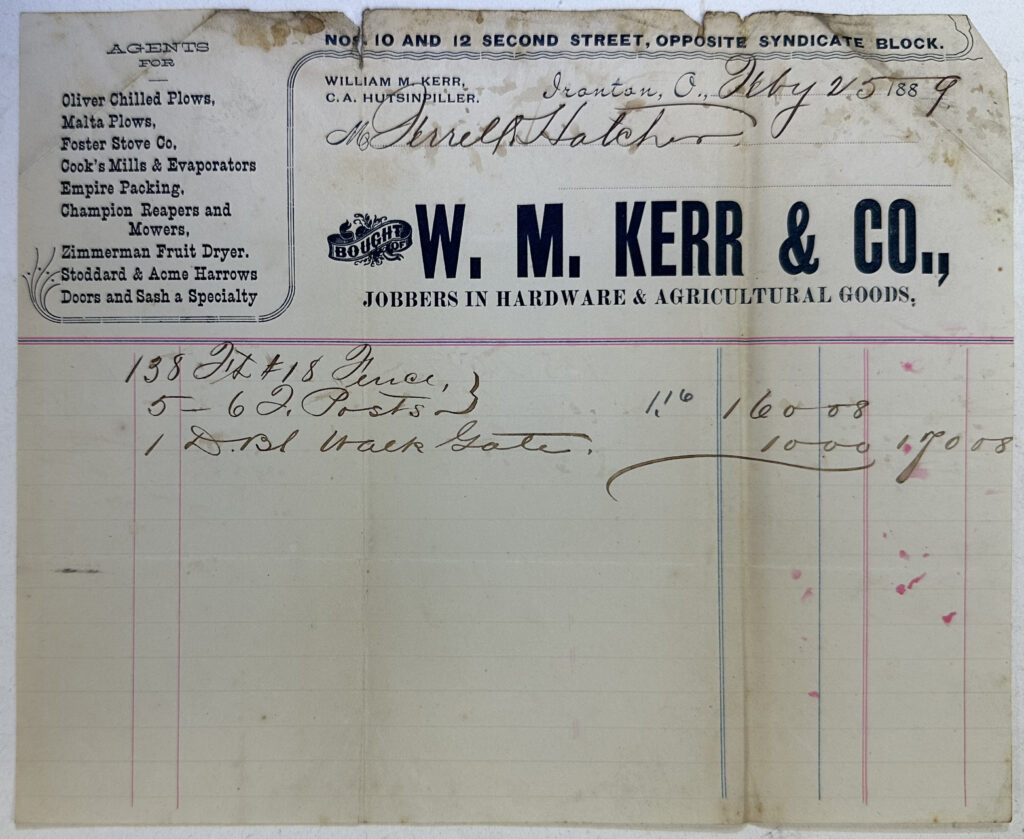 AGENTS
FOR
Oliver Chilled Plows,
Malta Plows,
Foster Stove Co,
Cook's Mills & Evaporators
Empire Packing,
Champion Reapers and
Mowers,
Zimmerman Fruit Dryer.
Stoddard & Acme Harrows
Doors and Sash a Specialty
NOS. 10 AND 12 SECOND STREET, OPPOSITE SYNDICATE BLOCK.
WILLIAM M. KERR,
C. A. HUTSINPILLER.
Ironton, O., Feby 25 1889
M Ferrell & Hatcher
BOUGHT OF
W. M. KERR & CO.,
JOBBERS IN HARDWARE & AGRICULTURAL GOODS,
138 Ft #18 Fence,
5 - 6 Posts 1.16 160 08
1 D. Bl Walk Gate. 10 00 170 08